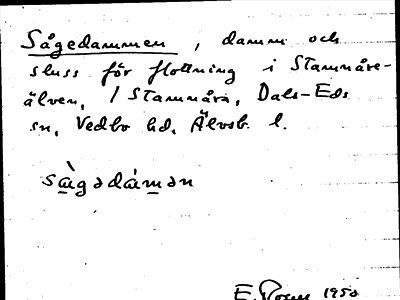 Sågedammen, damm och
sluss för flottning i Stamnåre-
älven, / Stamnåra, Dals-Eds
sn, Vedbo hd, Älvsb. l.
sɑ̀gədámən
E. 1950